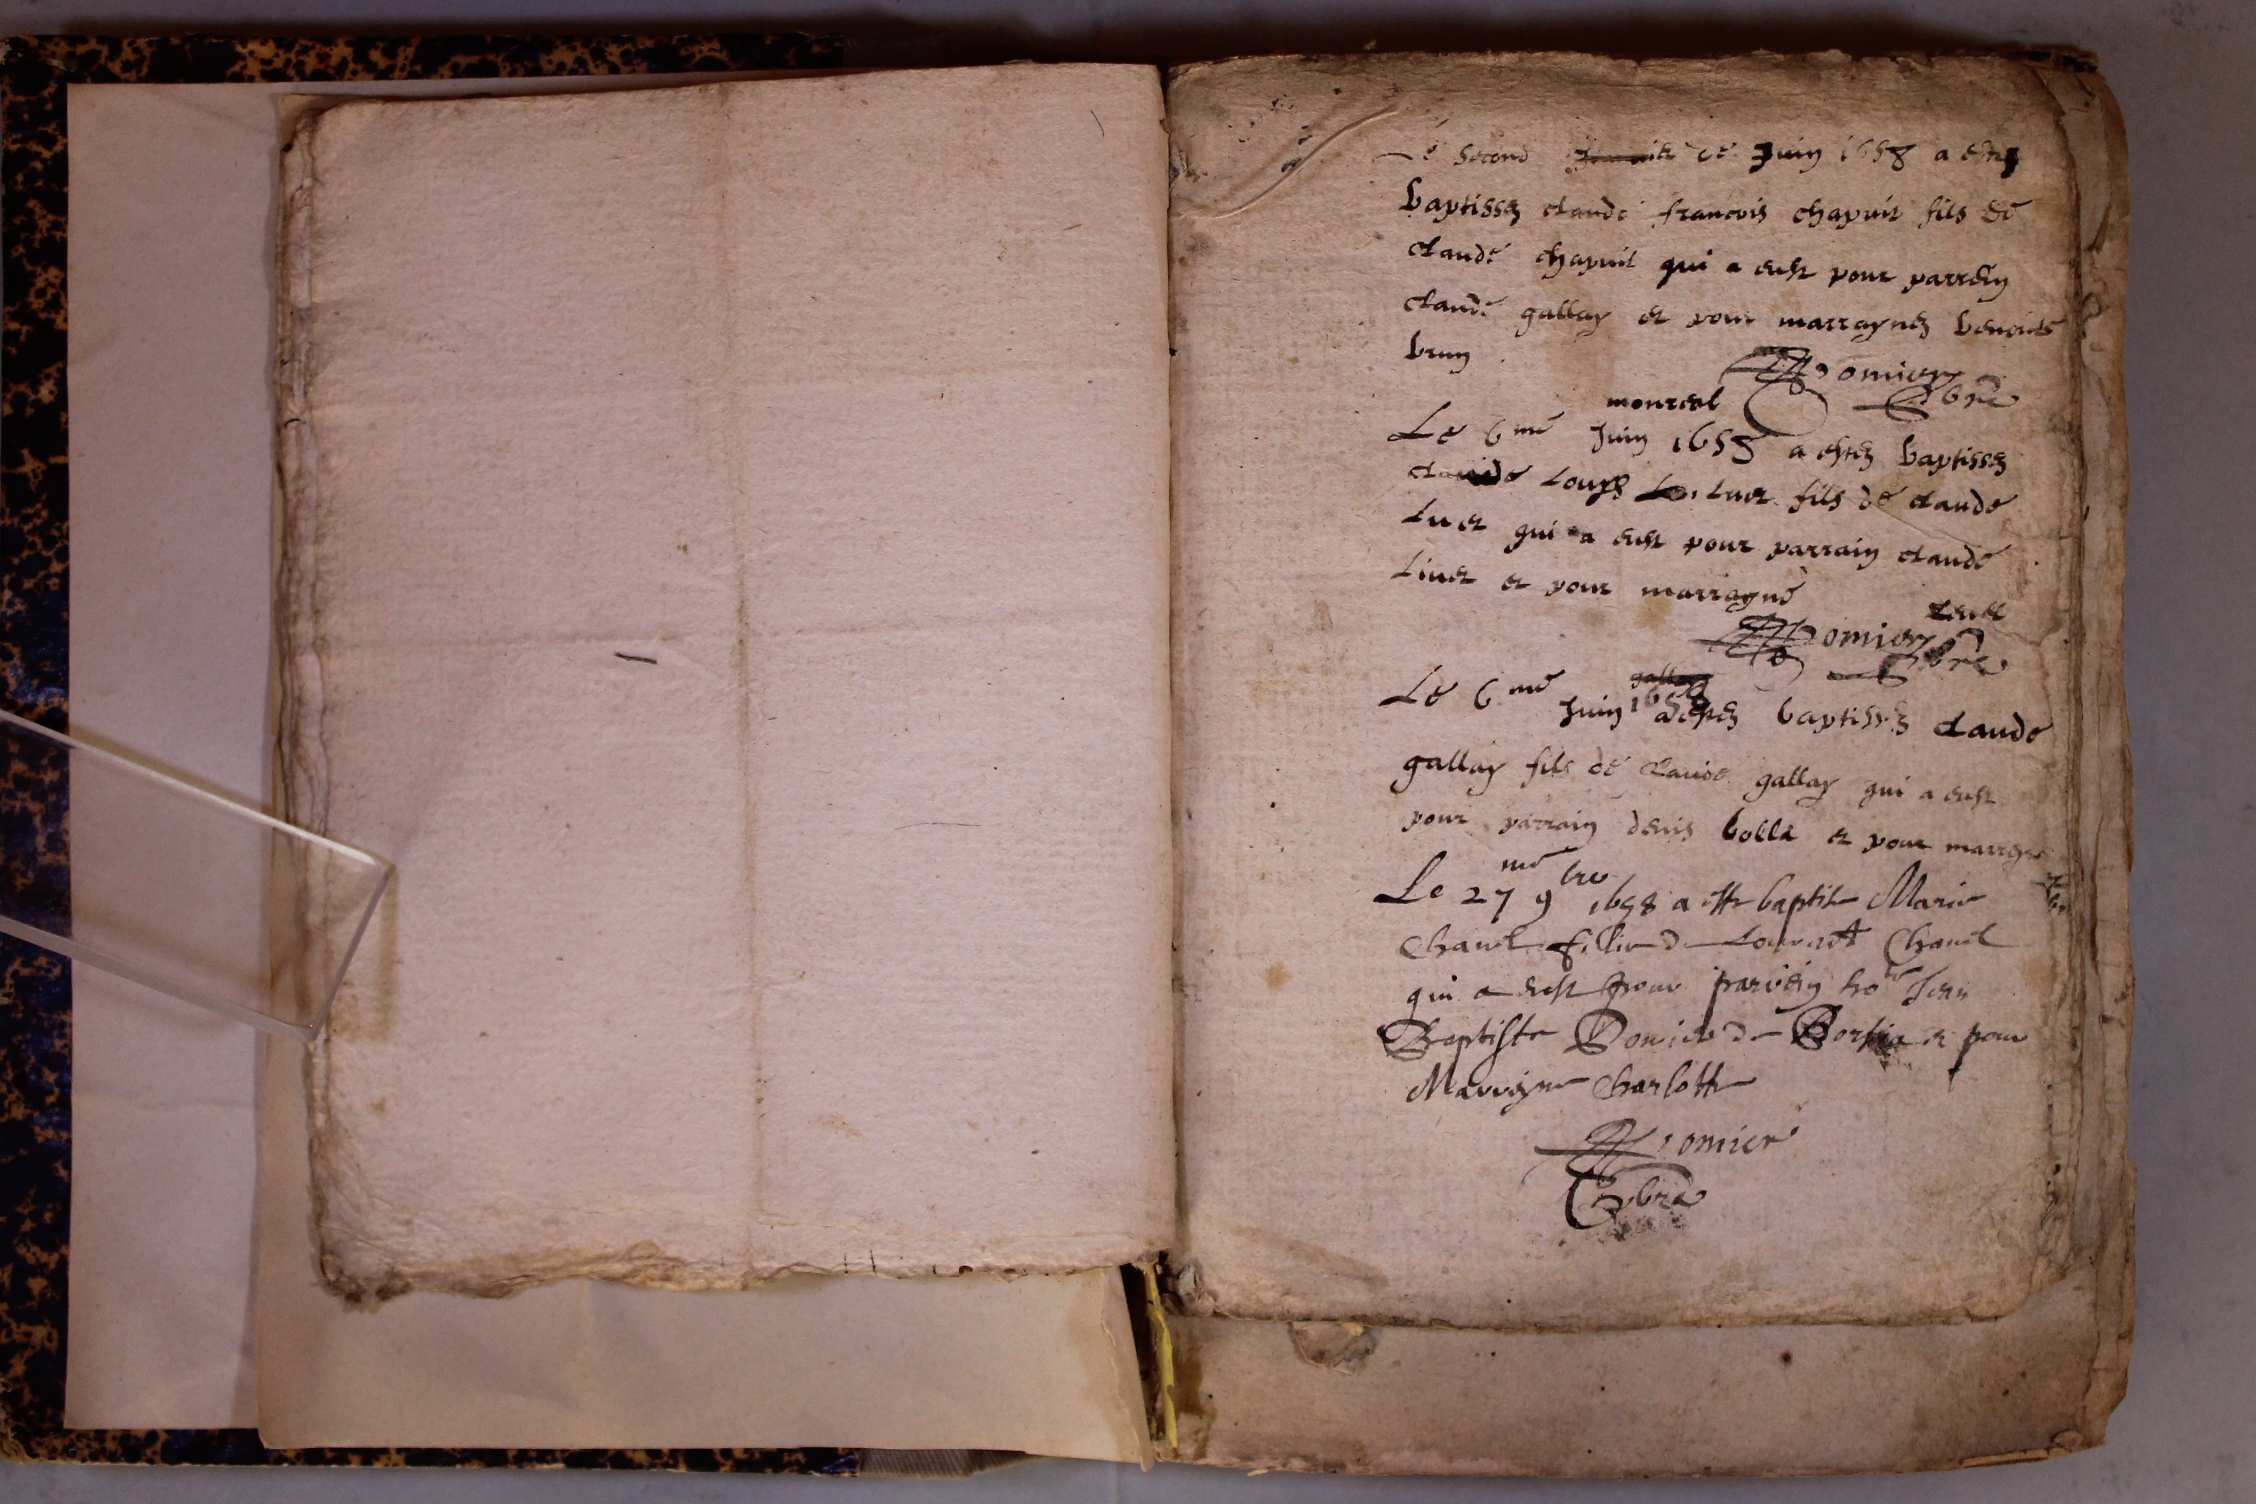 Le second de Juin 1658 a estez
baptissez claude francois chapuit fils de
claude chapuit qui a eust pour parrein
claude gallay et pour marraynez benoicte
brun
Pomier
pbre
monreal
Le 6me Juin 1658 a estez baptissez
claude Louys Luet fils de claude
Luet qui a eust pour parrain claude
Livet et pour marrayne
Pomier
pbre
gallay
Le 6me Juin 1658 a estez baptissez claude
gallay fils de claude gallay qui a eust
pour parrain denis bolla et pour marrayne
Le 27me 9bre 1658 a este baptise Marie
Chavel fillie de Chavel
qui a eust pour parrein ho Jean
Baptiste de et pour
Marreyne Charlotte
Pomier
pbre